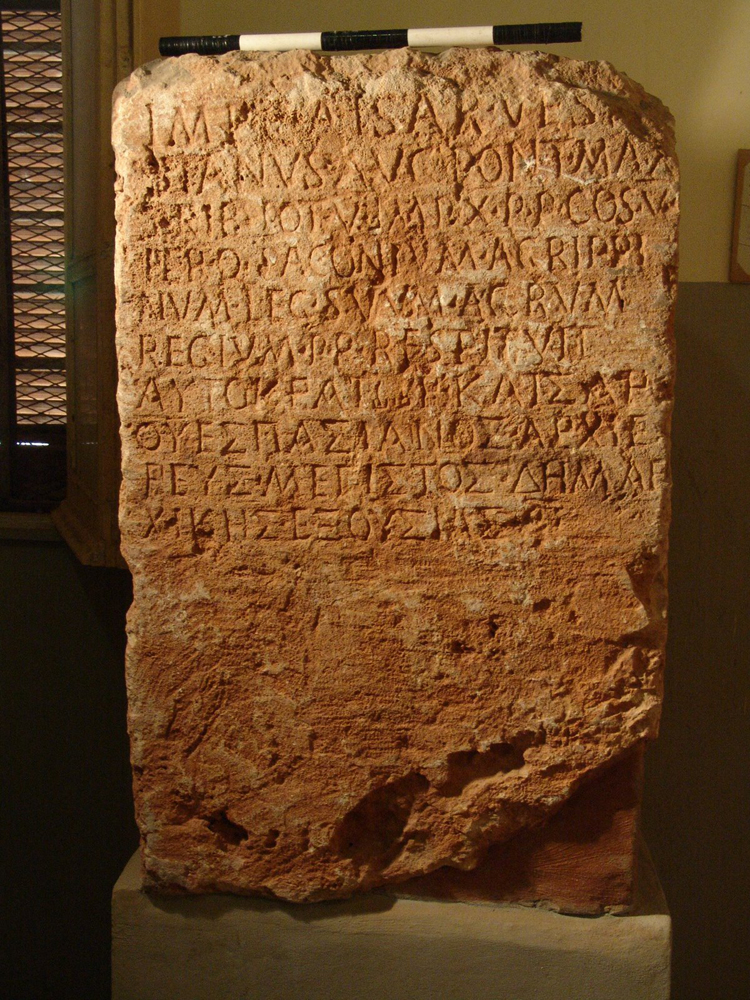 IMP · CAESAR · VES
SIANVS · AVG · PONT · MAX
TRIB · POT · V · IMP · X · P · P · COS · V
PER · Q · PACONIVM · AGRIPPI
NVM · LEG · SVVM · AGRVM
REGIVM · P · R · RESTITVIT
ΑΥΤΟΚΡΑΤΩΡ · ΚΑΙΣΑΡ
ΟΥΕΣΠΑΣΙΑΝΟΣ · ΑΡΧΙΕ
ΡΕΥΣ · ΜΕΓΙΣΤΟΣ · ΔΗΜΑΡ
ΧΙΚΗΣ ΕΞΟΥΣΙΑΣ